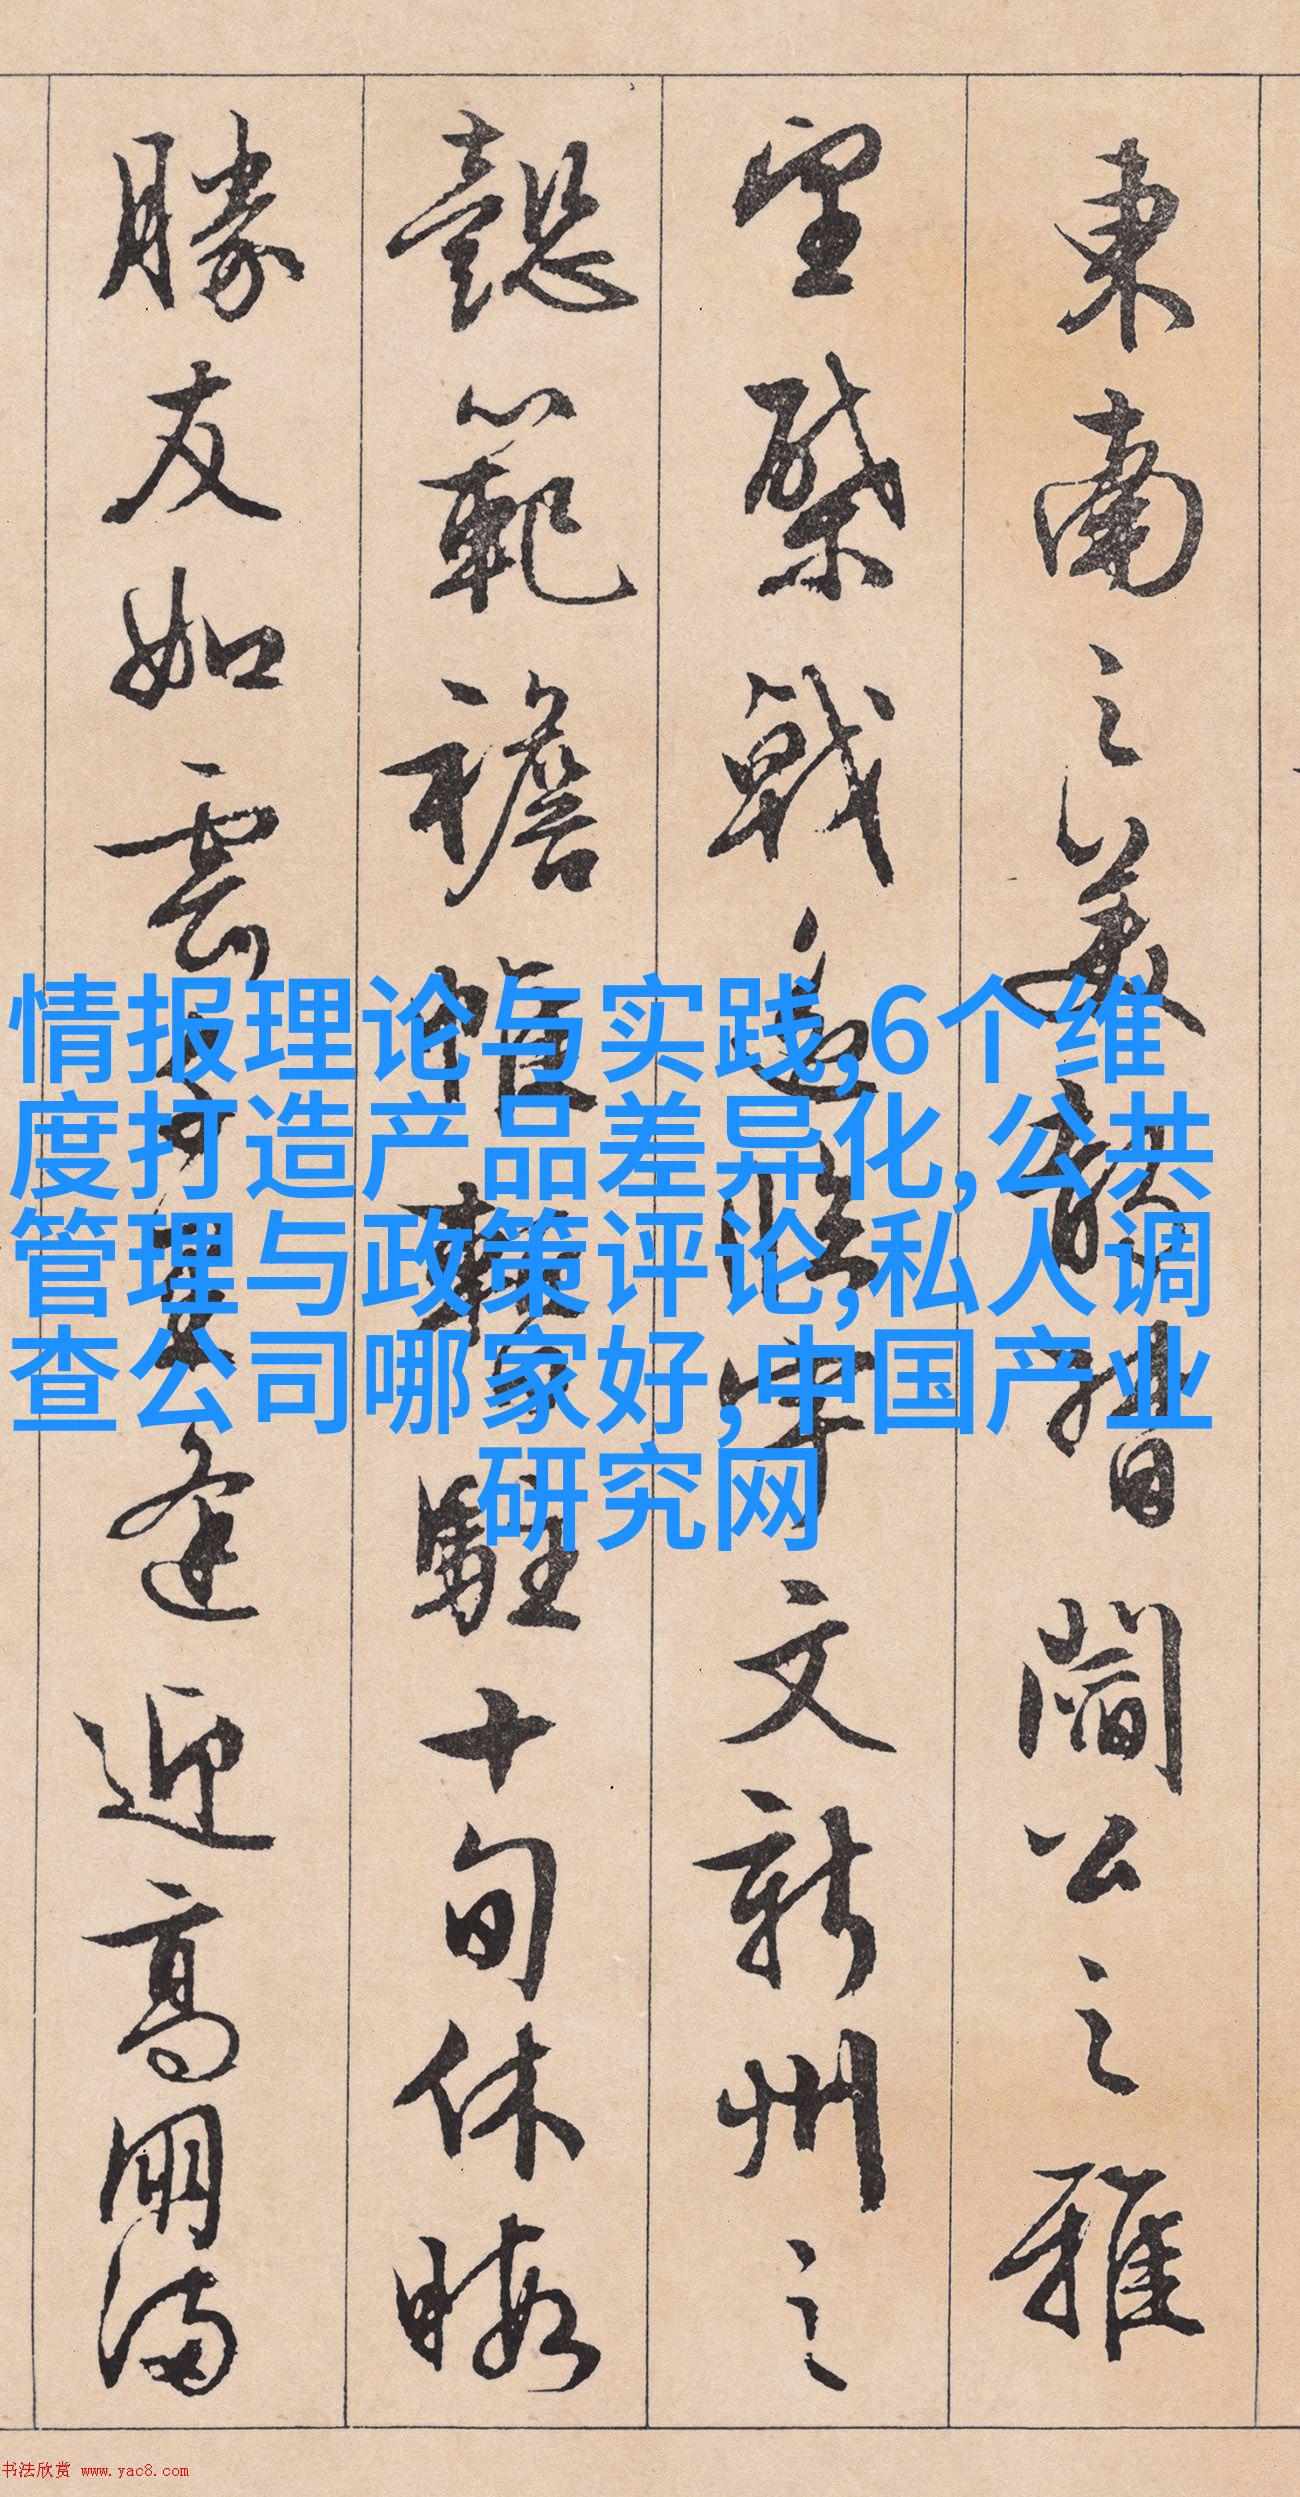 東南之美都督閻公之雅
望棨戟遙臨宇文新州之
懿範襜帷暫駐十旬休暇
勝友如雲千里逢迎高朋滿
情报理论与实践,6个维
度打造产品差异化,公共
管理与政策评论,私人调
查公司哪家好,中国产业
研究网
书法欣赏 www.yac8.com